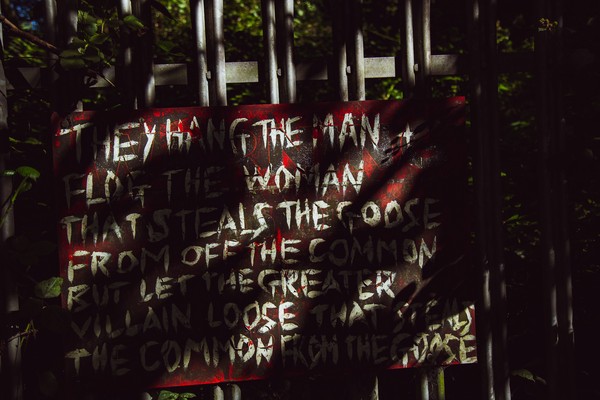 "THEY HANG THE MAN +
FLOG THE WOMAN
THAT STEALS THE GOOSE
FROM OFF THE COMMON
BUT LET THE GREATER
VILLAIN LOOSE THAT STEALS
THE COMMON FROM THE GOOSE